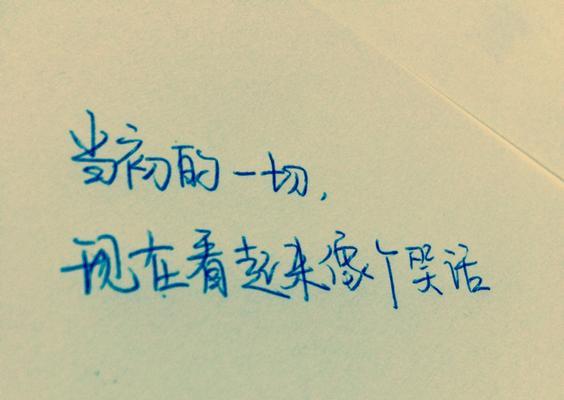 当初的一切,
现在看起来像个哭话